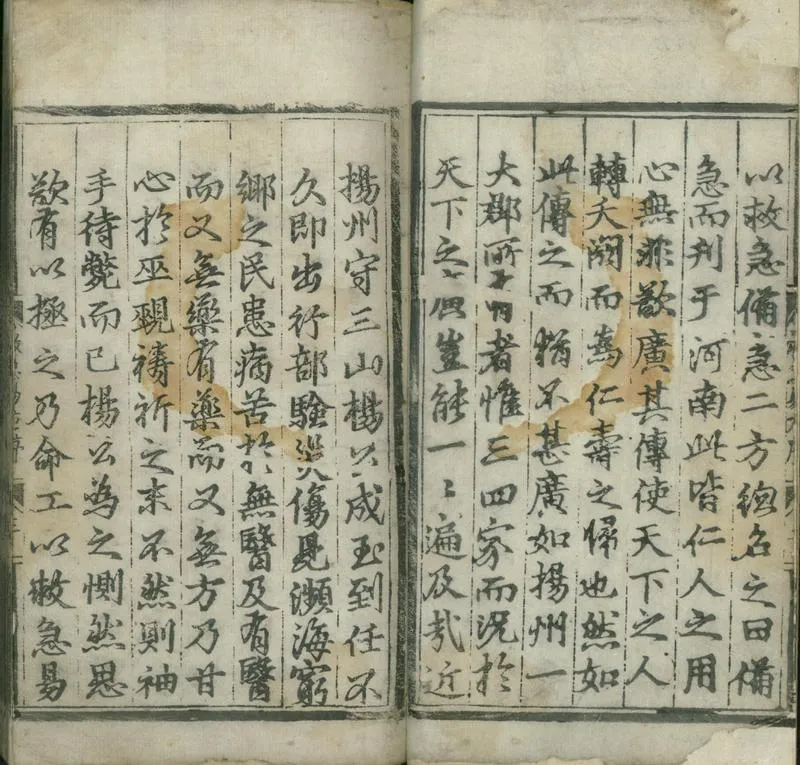 以救急備急二方總名之曰備
急而刋于河南此皆仁人之用
心無非欲廣其傳使天下之人
轉夭閼而爲仁壽之歸也然如
此傳之而猶不甚廣如揚州一
大郡所者惟三四家而況於
天下之豈能一〻遍及哉近
揚州守三山楊公成玉到任不
久即出行部驗災傷見瀕海窮
鄉之民患病苦於無醫及有醫
而又無藥有藥而又無方乃甘
心於巫覡禱祈之末不然則袖
手待斃而已楊公為之惻然思
欲有以拯之乃命工以救急易